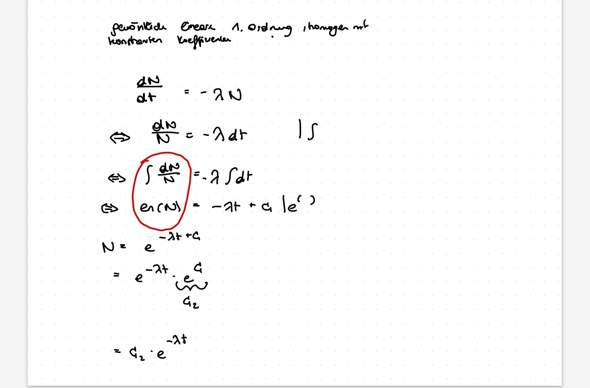 gewöhnliche lineare 1. Ordnung, homogen mit
konstanten Koeffizienten
dN/dt = -λN
⇔ dN/N = -λdt |∫
⇔ ∫ dN/N = -λ∫dt
⇔ ln(N) = -λt + C₁ |e^( )
N = e^(-λt + C₁)
= e^(-λt) · e^(C₁)
C₂
= C₂ · e^(-λt)